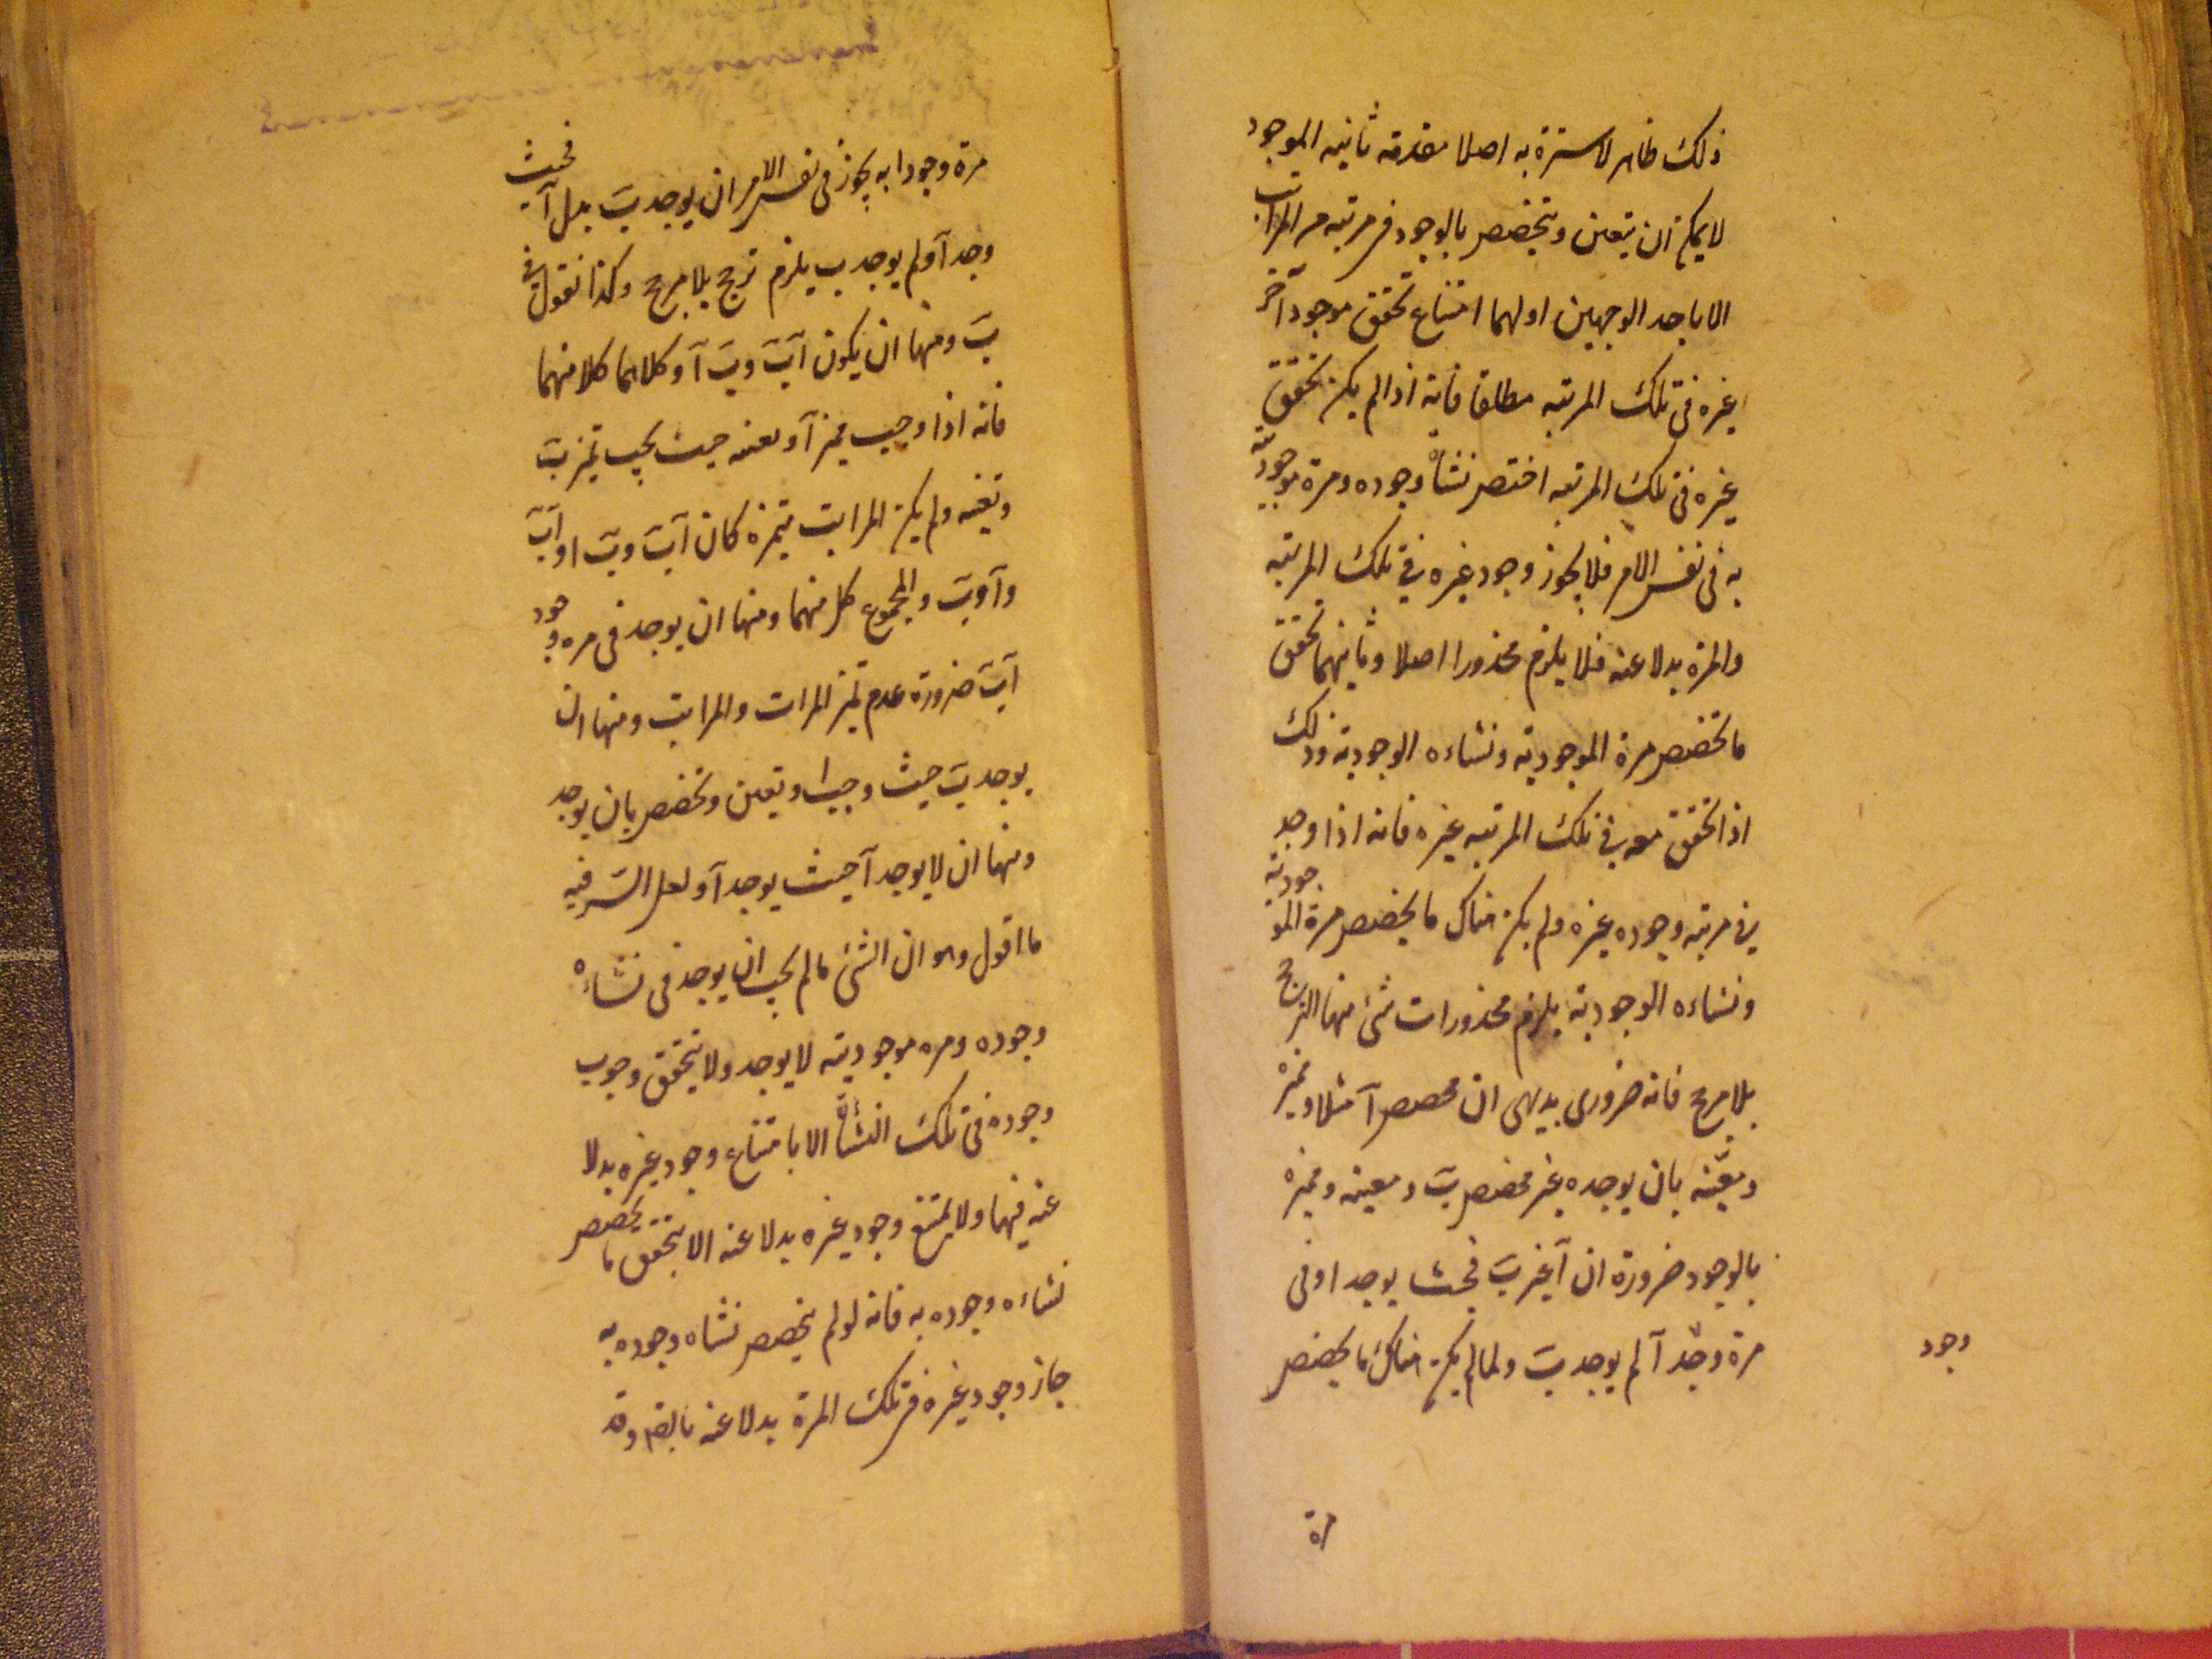 ذلك ظاهر لا سترة به اصلا مقدمه ثانيه الموجود
لا يمكن ان يتعين و يتخصص بالوجود فى مرتبه من المراتب
الا باحد الوجهين اولهما امتناع تحقق موجود آخر
غيره فى تلك المرتبه مطلقا فانه اذا لم يكن تحقق
غيره فى تلك المرتبه اختص نشأة وجوده و مرة موجوديته
به فى نفس الامر فلا يجوز وجود غيره فى تلك المرتبه
والمرة بدلا عنه فلا يلزم محذورا اصلا و ثانيهما تحقق
ما تخصص مرة الموجودية و نشاءه الوجودية و ذلك
اذا تحقق معه فى تلك المرتبه غيره فانه اذا وجد
فى مرتبه وجوده غيره ولم يكن هناك ما يخصص مرة الموجودية
و نشاءه الوجودية يلزم محذورات شئ منها الترجح
بلا مرجح فانه ضرورى بديهى ان مخصص آ مثلا و مميزه
و معينه بان يوجده غير مخصص ب و معينه و مميزه
بالوجود ضرورة ان آ غير ب فحيث يوجد ا و فى
مرة وجد آ لم يوجد ب ولما لم يكن هناك ما يخصص
وجود
مرة
مرة وجود ا به يجوز فى نفس الامر ان يوجد ب بدل آ فحيث
وجد آ ولم يوجد ب يلزم ترجح بلا مرجح و كذا نقول فى
ب و منها ان يكون آ ب و ب آ و كلاهما كلا منهما
فانه اذا وجب مميز آ و معينه حيث يجب تميز ب
و تعينه ولم يكن المراتب متميزه كان آ ب و ب ا و آ ب
و آ و ب والمجموع كل منهما و منها ان يوجد فى مره وجود
آ ب ضرورة عدم تميز المرات والمراتب و منها ان
يوجد ب حيث وجب ا و تعين و تخصص بان يوجد
و منها ان لا يوجد آ حيث يوجد آ و لعل السر فيه
ما اقول و هو ان الشئ ما لم يجب ان يوجد فى نشاءة
وجوده و مره موجوديته لا يوجد ولا يتحقق وجوب
وجوده فى تلك النشأة الا بامتناع وجود غيره بدلا
عنه فيهما ولا يمتنع وجود غيره بدلا عنه الا بتحقق ما يخصص
نشاءه وجوده به فانه لو لم يخصص نشاه وجوده به
جاز وجود غيره فى تلك المرة بدلا عنه وقد